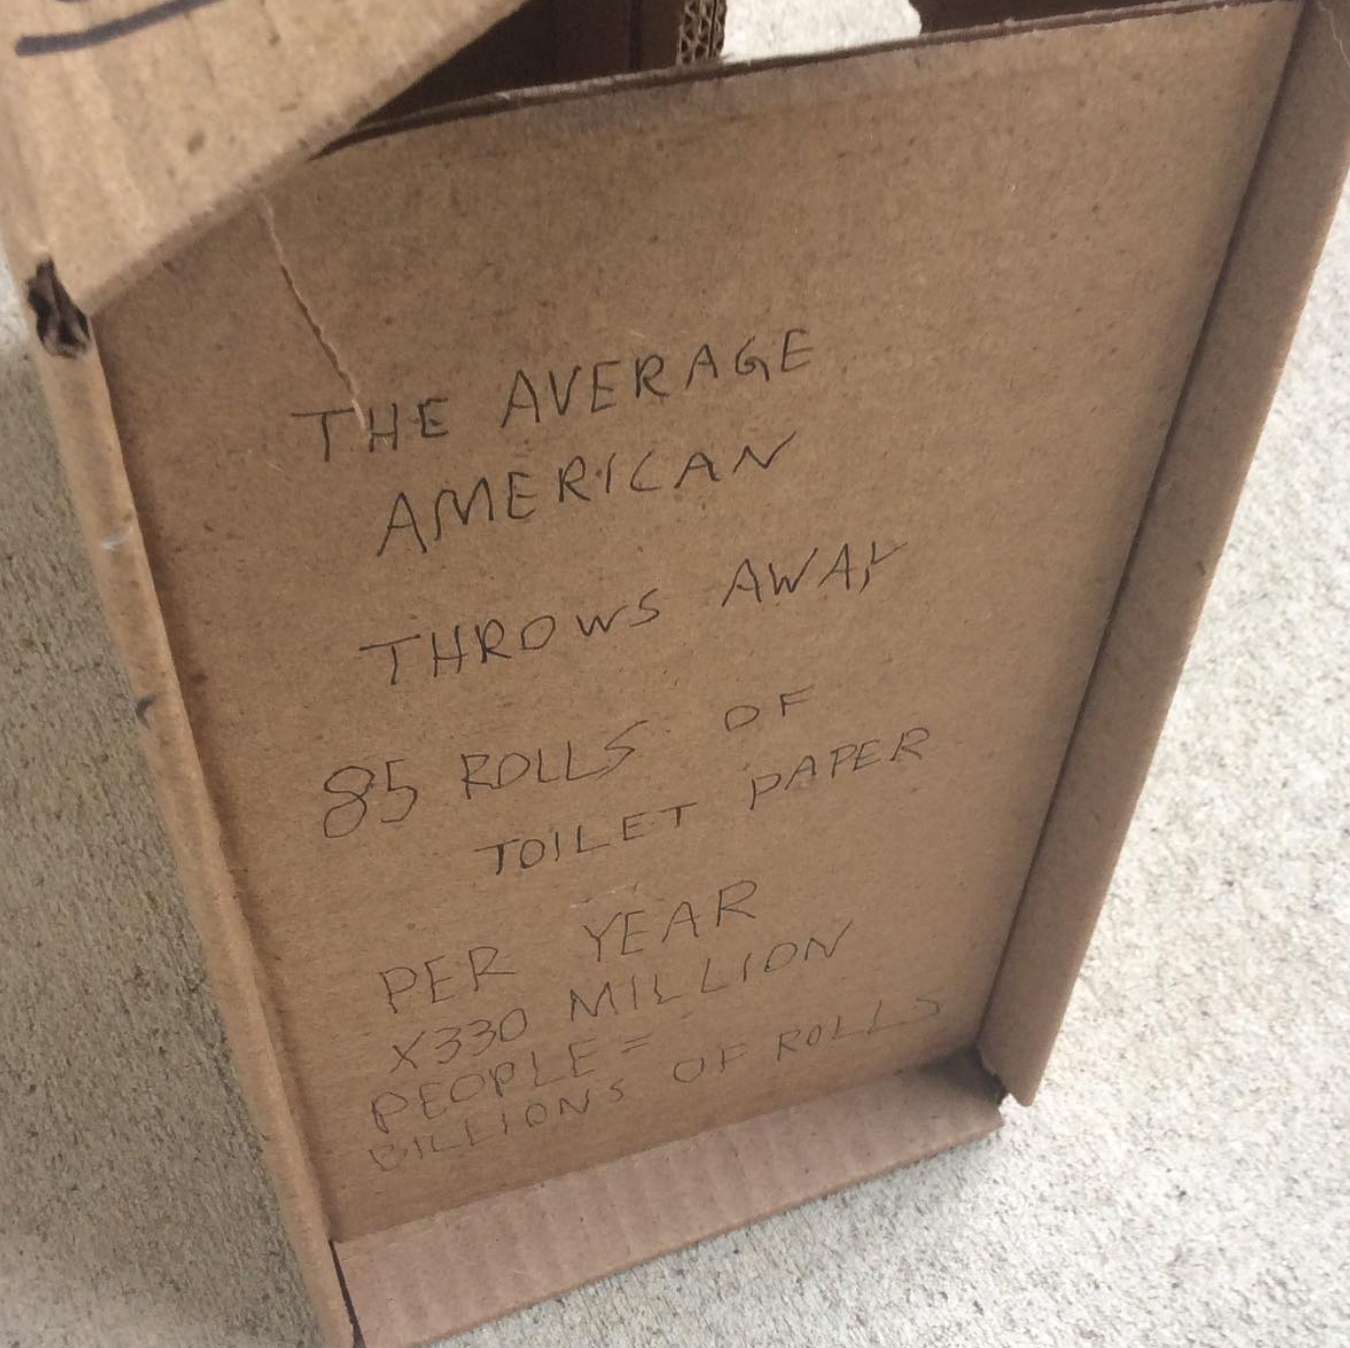 THE AVERAGE
AMERICAN
THROWS AWAY
85 ROLLS OF
TOILET PAPER
PER YEAR
X330 MILLION
PEOPLE =
BILLIONS OF ROLLS